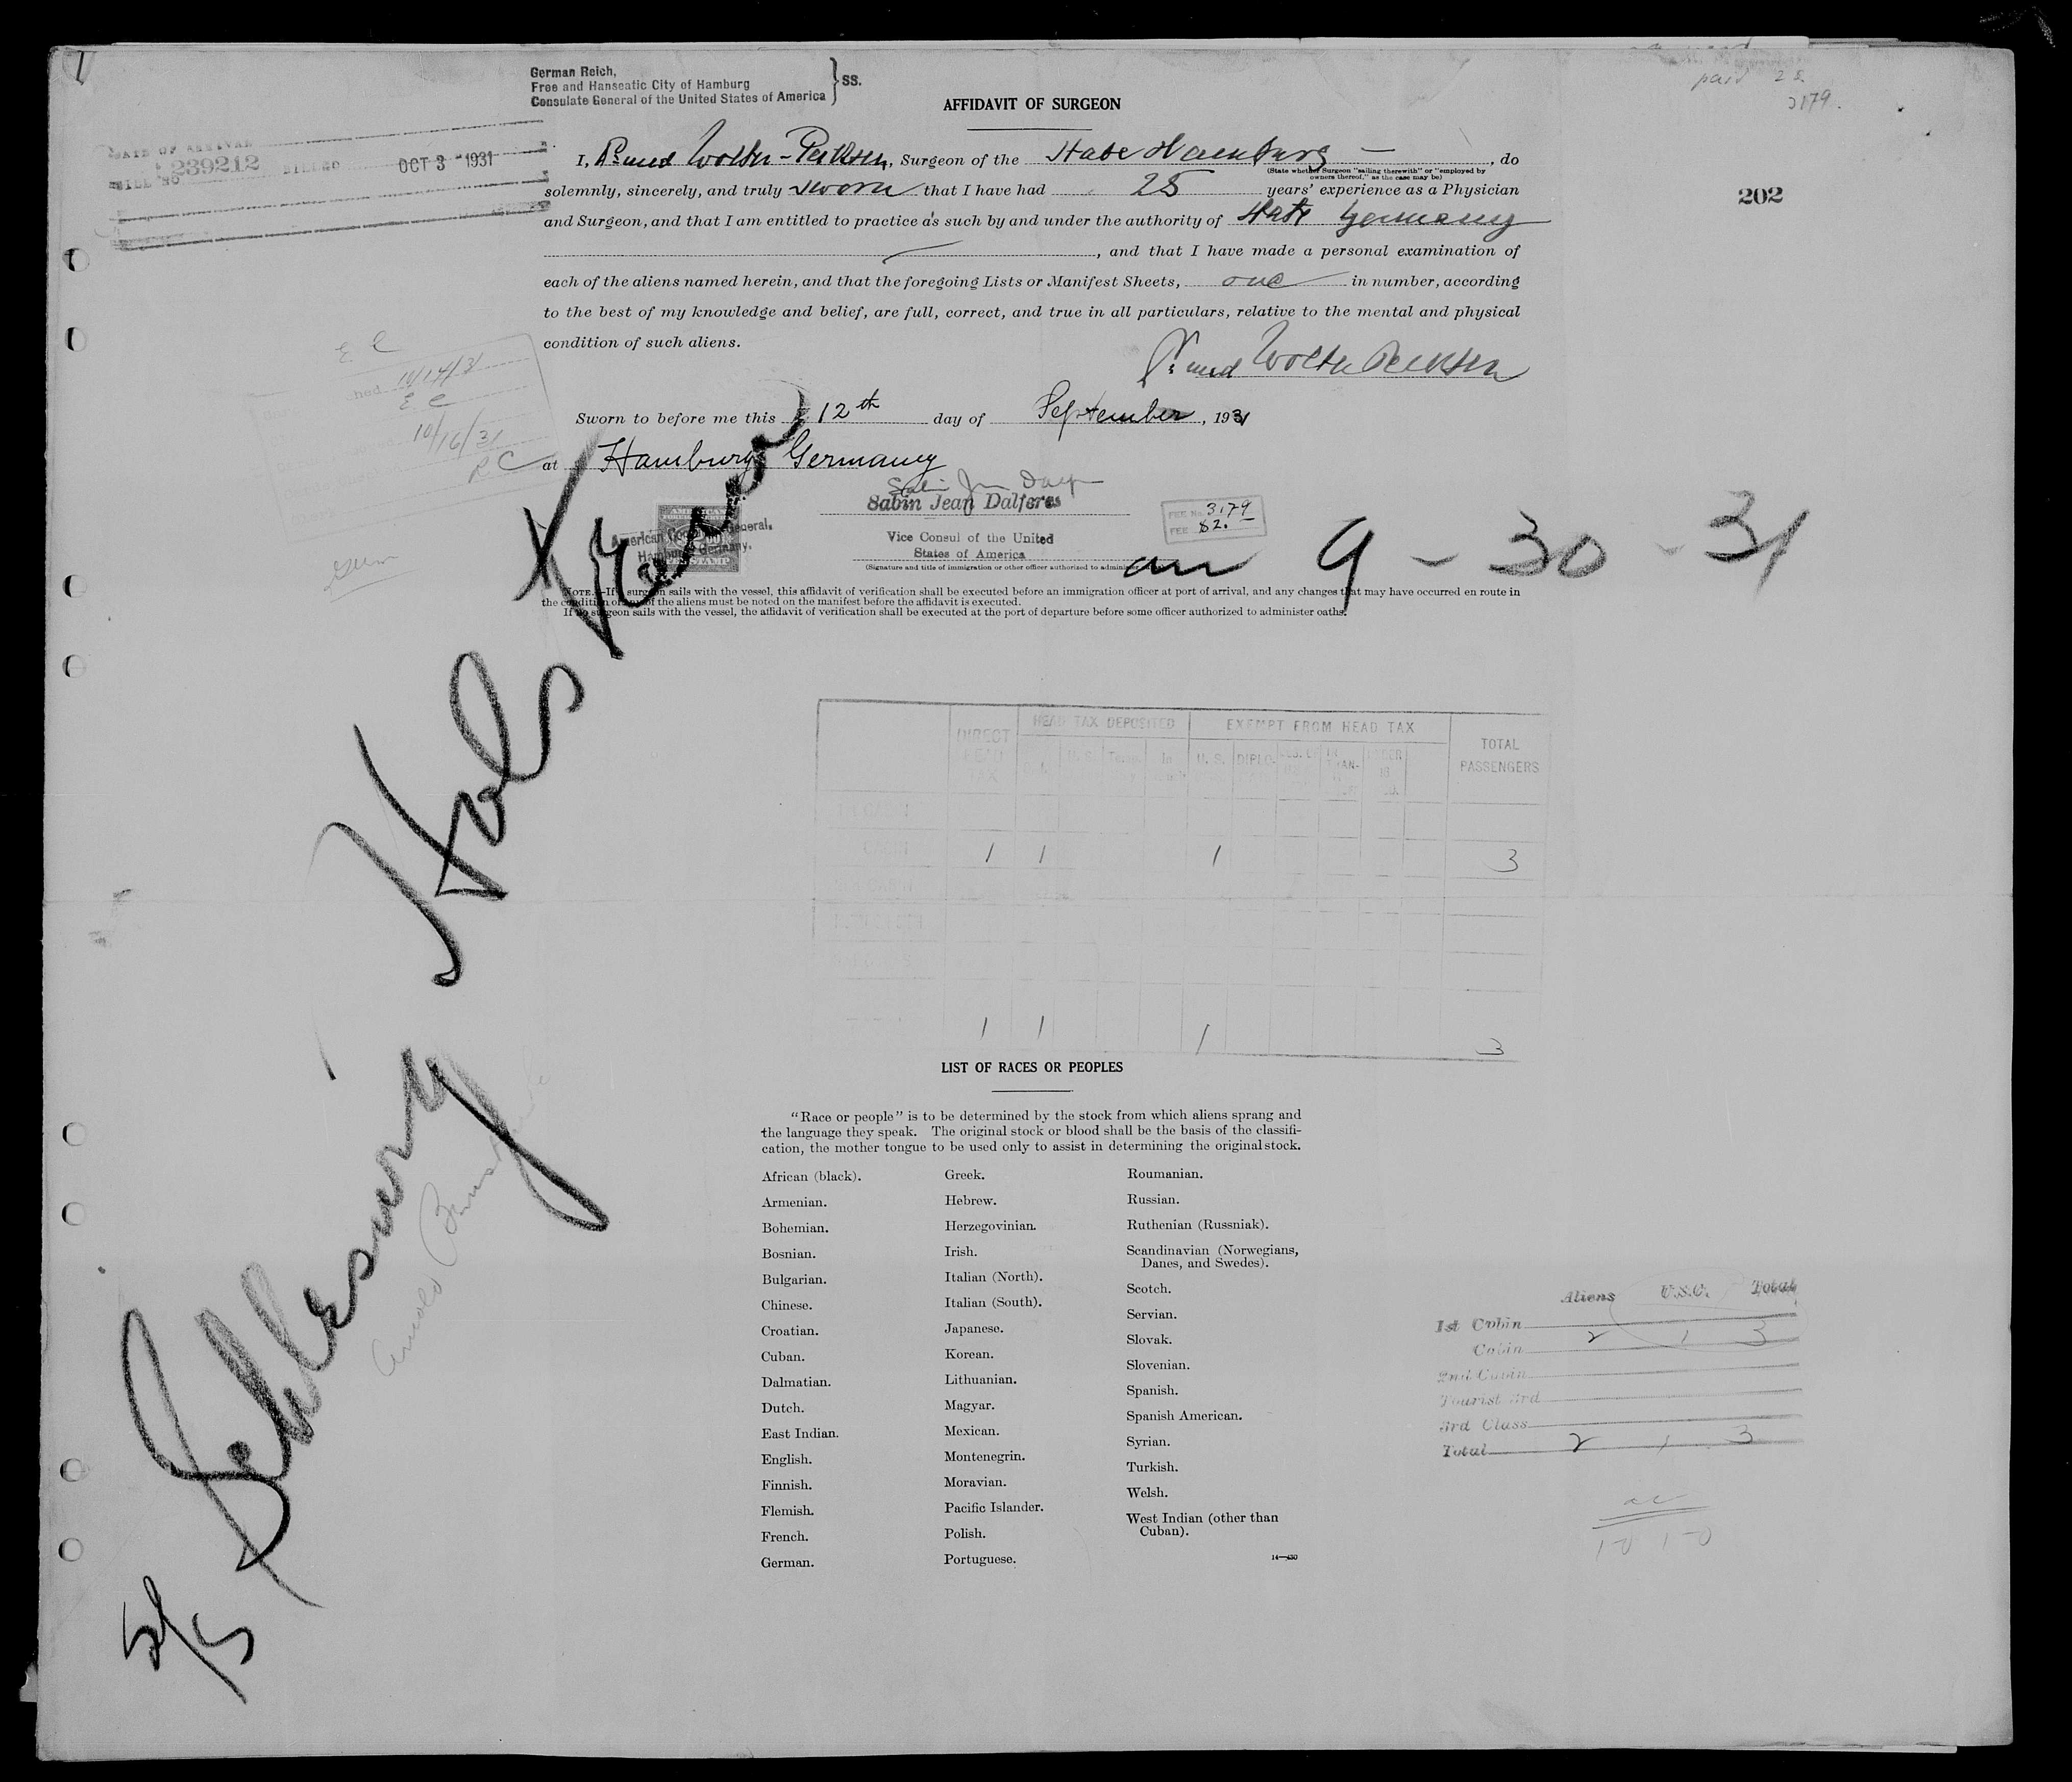 German Reich,
Free and Hanseatic City of Hamburg
Consulate General of the United States of America } SS.
paid 2 $
3179.
AFFIDAVIT OF SURGEON
DATE OF ARRIVAL
BILL NO 239212 BILLED OCT 3 - 1931
I, Dr. med Wolter-Pecksen, Surgeon of the State Hamburg —, do
(State whether Surgeon "sailing therewith" or "employed by
owners thereof," as the case may be)
solemnly, sincerely, and truly sworn that I have had 25 years' experience as a Physician
202
and Surgeon, and that I am entitled to practice as such by and under the authority of State Germany
, and that I have made a personal examination of
each of the aliens named herein, and that the foregoing Lists or Manifest Sheets, one in number, according
to the best of my knowledge and belief, are full, correct, and true in all particulars, relative to the mental and physical
condition of such aliens.
Dr. med Wolter Pecksen
E C
10/14/31
E C
10/16/31
R C
Sworn to before me this 12th day of September, 1931
at Hamburg, Germany
Sabin Jean Dalferes
FEE No. 3179
FEE $2.—
American Consulate General,
Hamburg, Germany.
Vice Consul of the United
States of America
(Signature and title of immigration or other officer authorized to administer
arr 9 - 30 - 31
NOTE.—If a surgeon sails with the vessel, this affidavit of verification shall be executed before an immigration officer at port of arrival, and any changes that may have occurred en route in
the condition of any of the aliens must be noted on the manifest before the affidavit is executed.
If no surgeon sails with the vessel, the affidavit of verification shall be executed at the port of departure before some officer authorized to administer oaths.
S/S Schleswig Holstein
DIRECT HEAD TAX
HEAD TAX DEPOSITED
EXEMPT FROM HEAD TAX
TOTAL PASSENGERS
U. S. U. S. DIPLO.
CABIN 1 1 1 3
1 1 1 3
LIST OF RACES OR PEOPLES
"Race or people" is to be determined by the stock from which aliens sprang and
the language they speak. The original stock or blood shall be the basis of the classifi-
cation, the mother tongue to be used only to assist in determining the original stock.
African (black).
Armenian.
Bohemian.
Bosnian.
Bulgarian.
Chinese.
Croatian.
Cuban.
Dalmatian.
Dutch.
East Indian.
English.
Finnish.
Flemish.
French.
German.
Greek.
Hebrew.
Herzegovinian.
Irish.
Italian (North).
Italian (South).
Japanese.
Korean.
Lithuanian.
Magyar.
Mexican.
Montenegrin.
Moravian.
Pacific Islander.
Polish.
Portuguese.
Roumanian.
Russian.
Ruthenian (Russniak).
Scandinavian (Norwegians,
Danes, and Swedes).
Scotch.
Servian.
Slovak.
Slovenian.
Spanish.
Spanish American.
Syrian.
Turkish.
Welsh.
West Indian (other than
Cuban).
14—430
Aliens U.S.C. Total
1st Cabin
Cabin 2 1 3
2nd Cabin
Tourist 3rd
3rd Class
Total 2 1 3